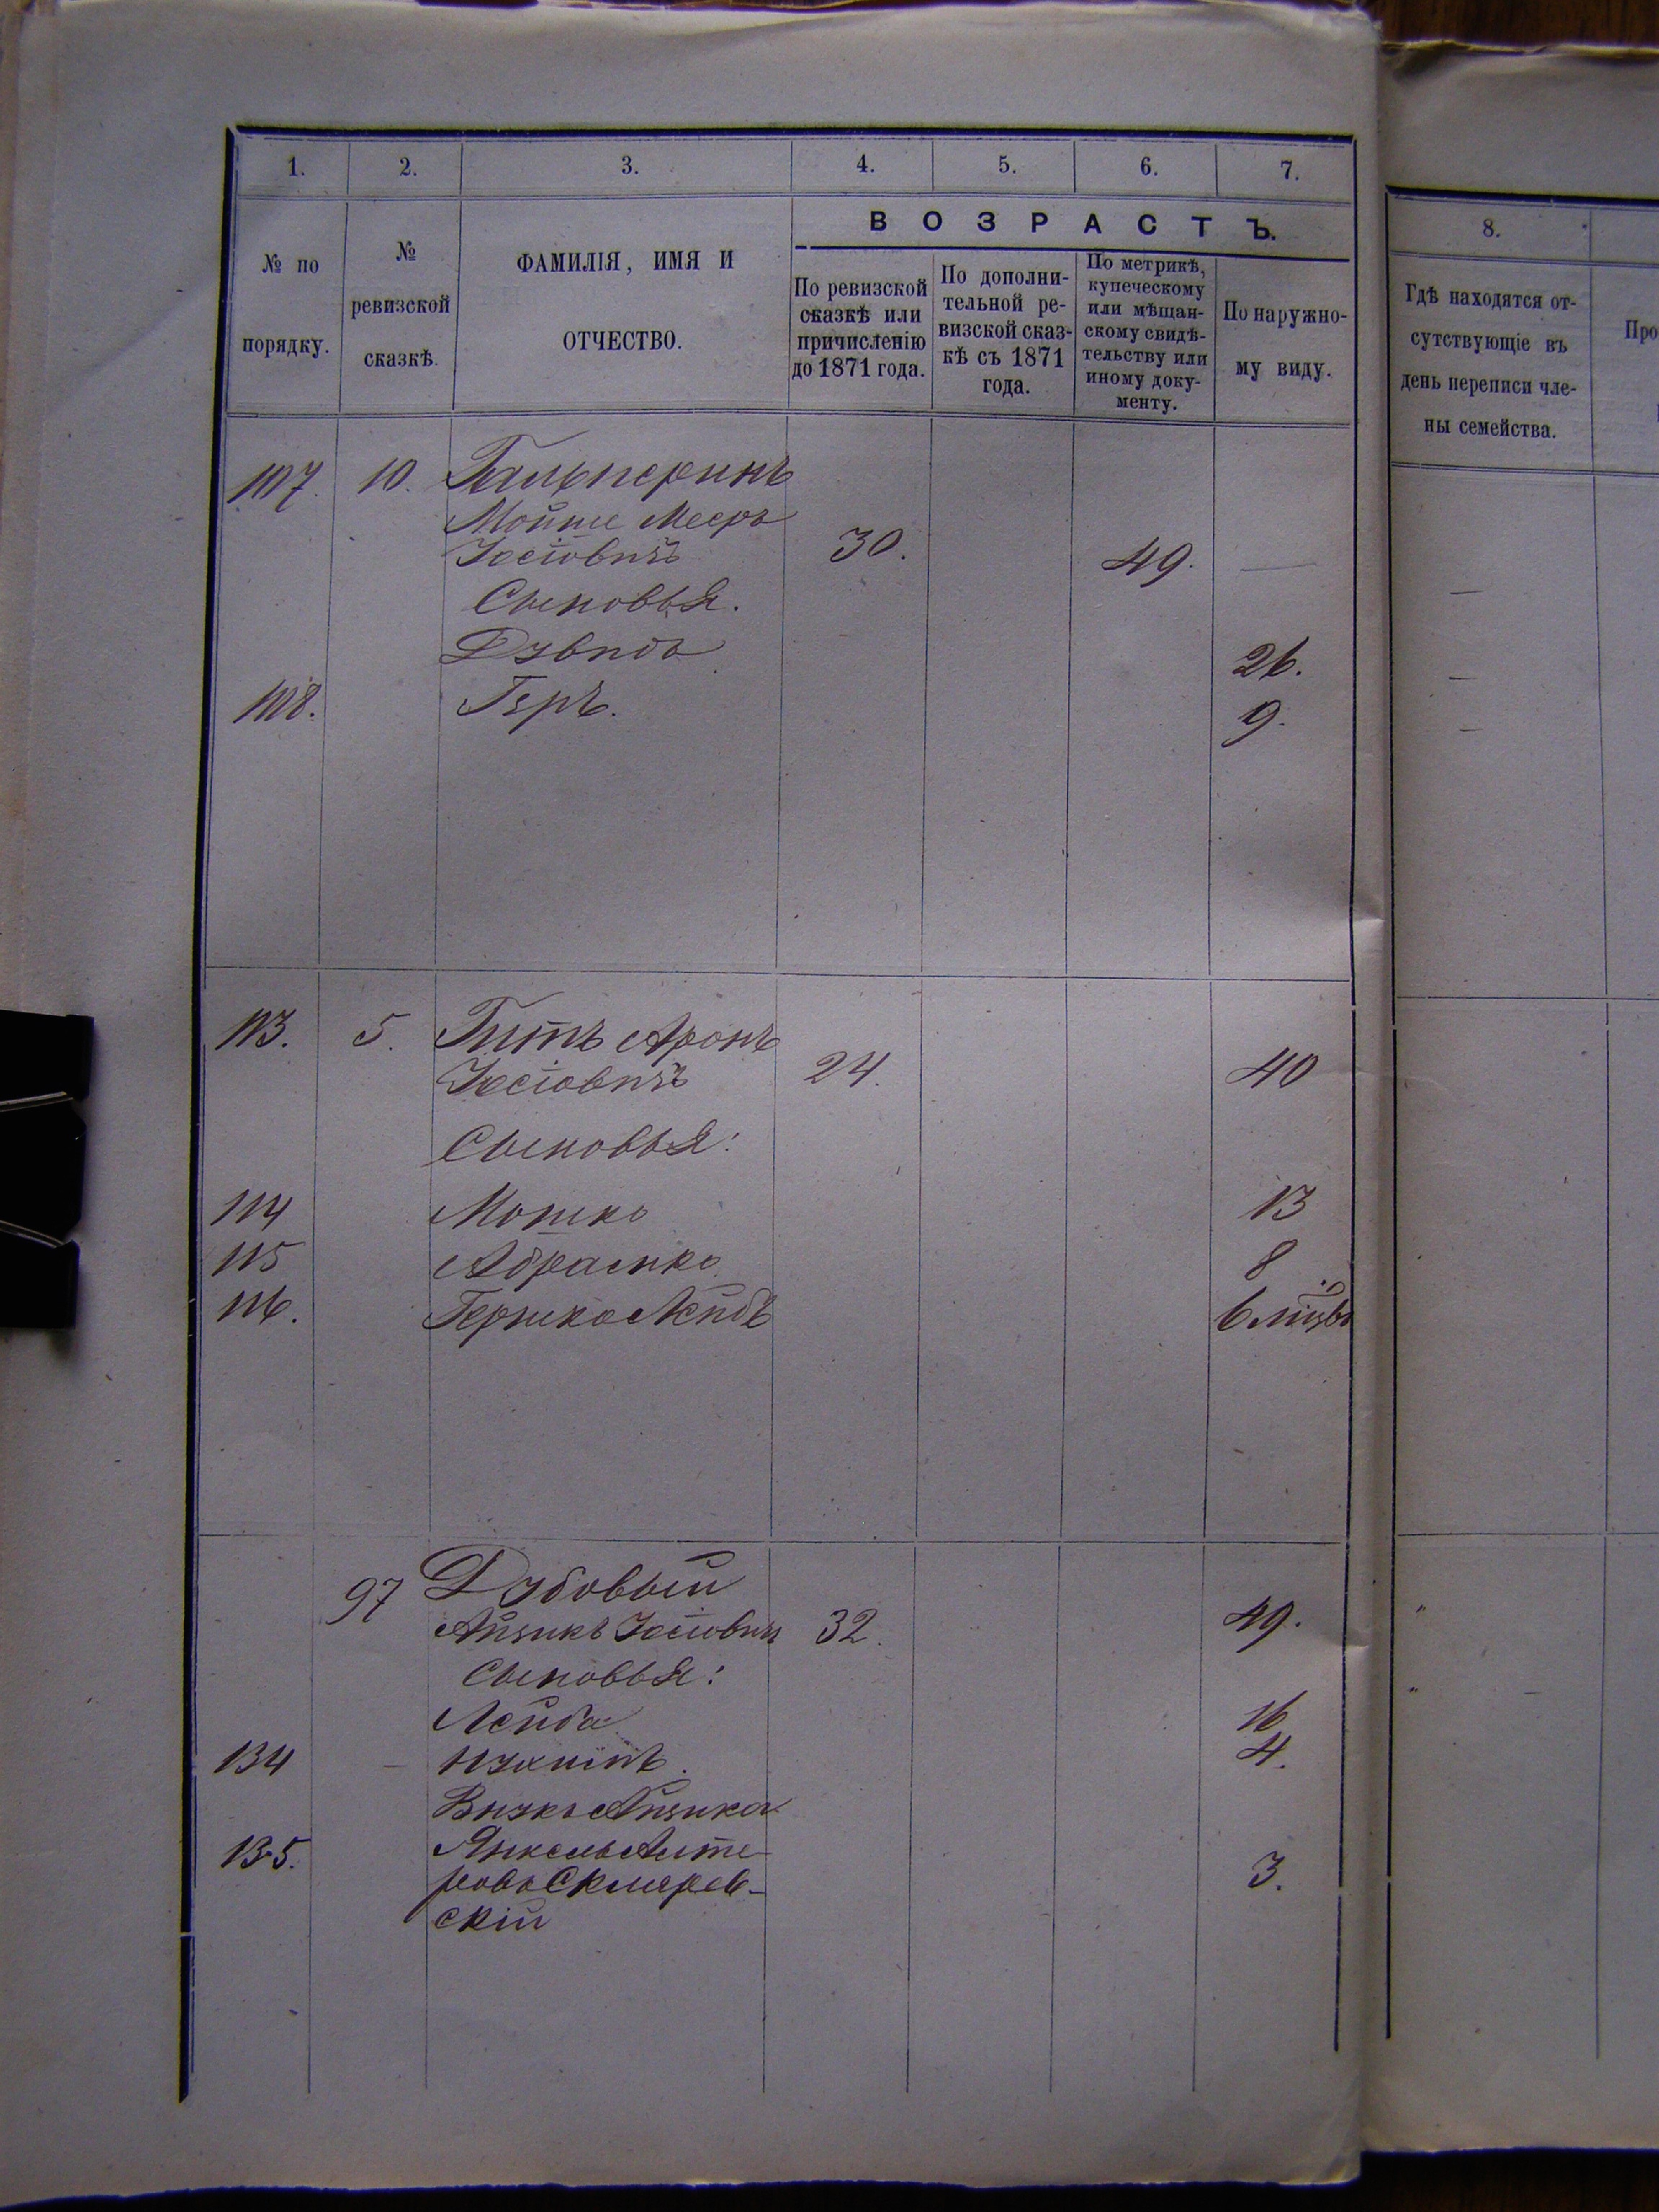 1. 2. 3. 4. 5. 6. 7.
№ по порядку.
№ ревизской сказкѣ.
ФАМИЛІЯ, ИМЯ И ОТЧЕСТВО.
ВОЗРАСТЪ.
По ревизской сказкѣ или причисленію до 1871 года.
По дополни-
тельной ре-
визской сказ-
кѣ съ 1871
года.
По метрикѣ,
купеческому
или мѣщан-
скому свидѣ-
тельству или
иному доку-
менту.
По наружно-
му виду.
107. 10. Гальперинъ
Мойше Мееръ
Іосіовичъ 30. 49. —
Сыновья.
Дувидъ 26.
108. Геръ. 9.
113. 5. Гитъ Аронъ
Іосіовичъ 24. 40
Сыновья:
114 Мошко 13
115 Абрамко 8
116. Гершко Лейбъ 6
97 Дубовый
Айзикъ Іосіовичъ 32. 49.
Сыновья:
Лейба 16
134 4.
Внукъ Айзика
135. Янкель Алте-
ровъ Склярев-
скій 3.
8.
Гдѣ находятся от-
сутствующіе въ
день переписи чле-
ны семейства.
—
—
—
Про